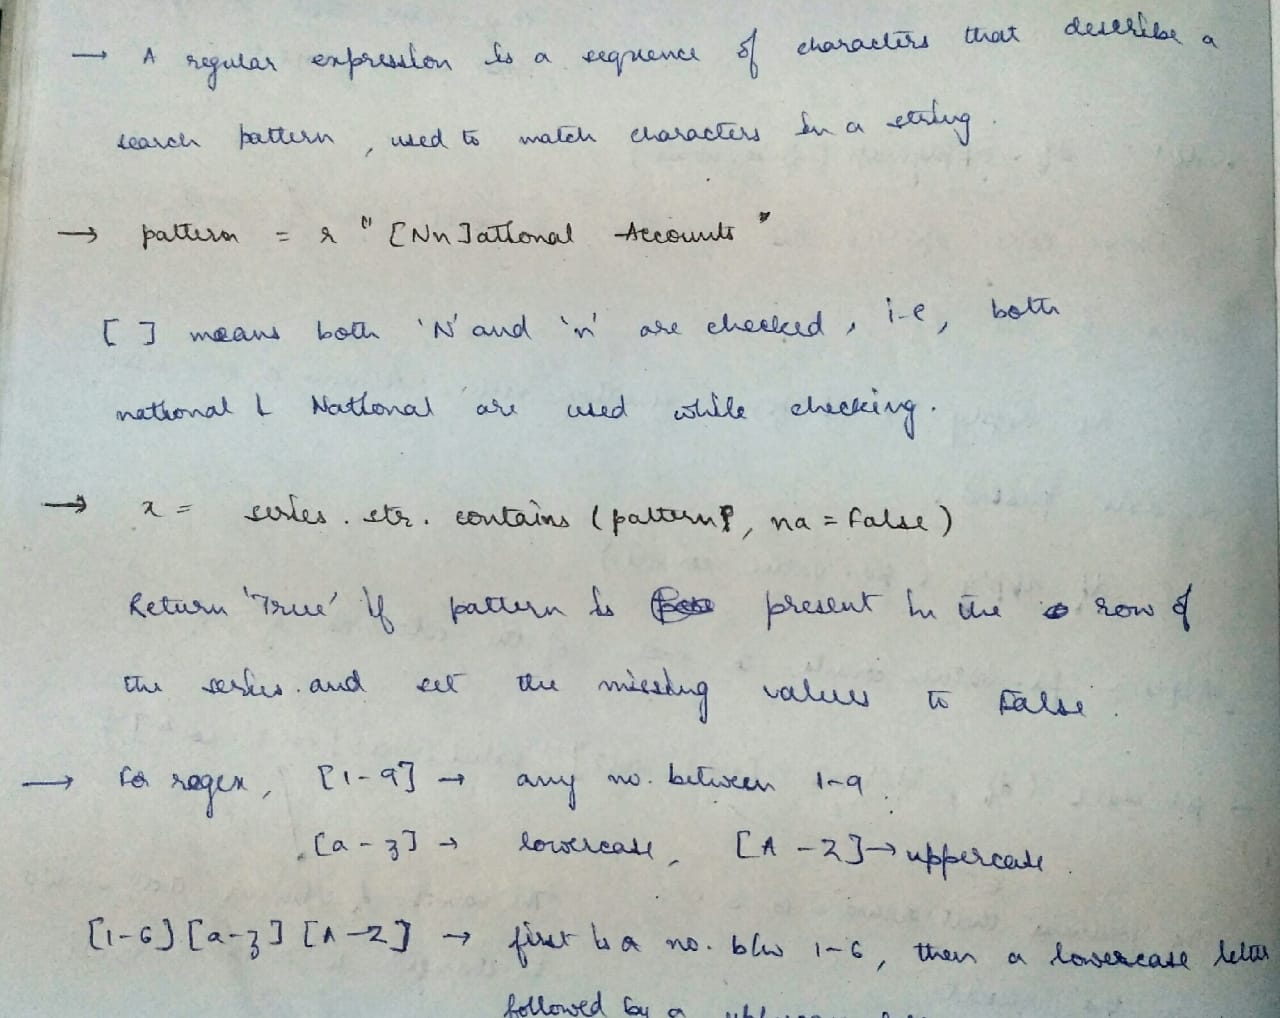 → A regular expression is a sequence of characters that describe a
search pattern, used to match characters in a string.
→ pattern = r "[Nn]ational Accounts"
[ ] means both 'N' and 'n' are checked, i-e, both
national & National are used while checking.
→ x = series.str.contains(pattern, na = False)
Return 'True' if pattern is present in the row of
the series. and set the missing values to False.
→ For regex, [1-9] → any no. between 1-9.
[a-z] → lowercase, [A-Z] → uppercase.
[1-6][a-z][A-Z] → first is a no. b/w 1-6, then a lowercase letter
followed by a